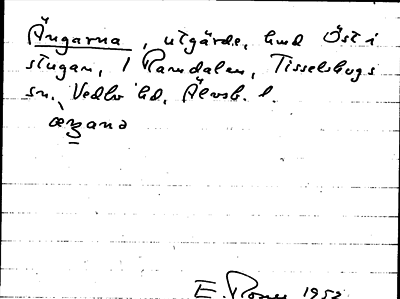 Ängarna, utgärde, hmd Öst i
stugan, 1 Ramdalen, Tisselskogs
sn. Vedbo hd, Älvsb. l.
æꞩana
E. Rosen 1952